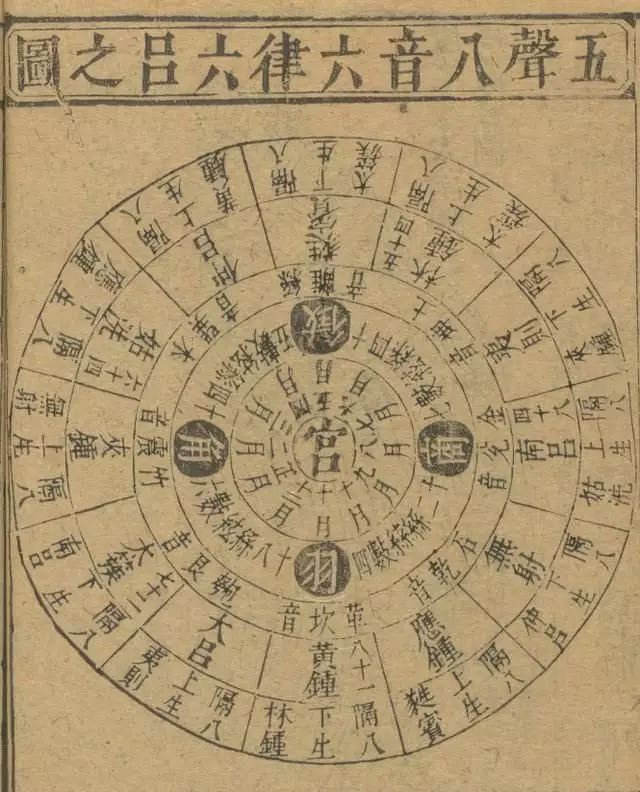 五聲八音六律六呂之圖
宮
正月
二月
三月
四月
五月
六月
七月
八月
九月
十月
十一月
十二月
徵
商
羽
角
絲絃數五十四
絲絃數七十二
絲絃數四十八
絲絃數六十四
革坎音
匏艮音
竹震音
木巽音
絲離音
土坤音
金兌音
石乾音
黃鍾八十一
隔八下生林鍾
大呂
隔八上生夷則
太簇七十二
隔八下生南呂
夾鍾
隔八上生無射
姑洗六十四
隔八下生應鍾
仲呂
隔八上生黃鍾
蕤賓
隔八下生
林鍾五十四
隔八上生太簇
夷則
隔八下生夾鍾
南呂四十八
隔八上生姑洗
無射
隔八下生仲呂
應鍾
隔八上生蕤賓